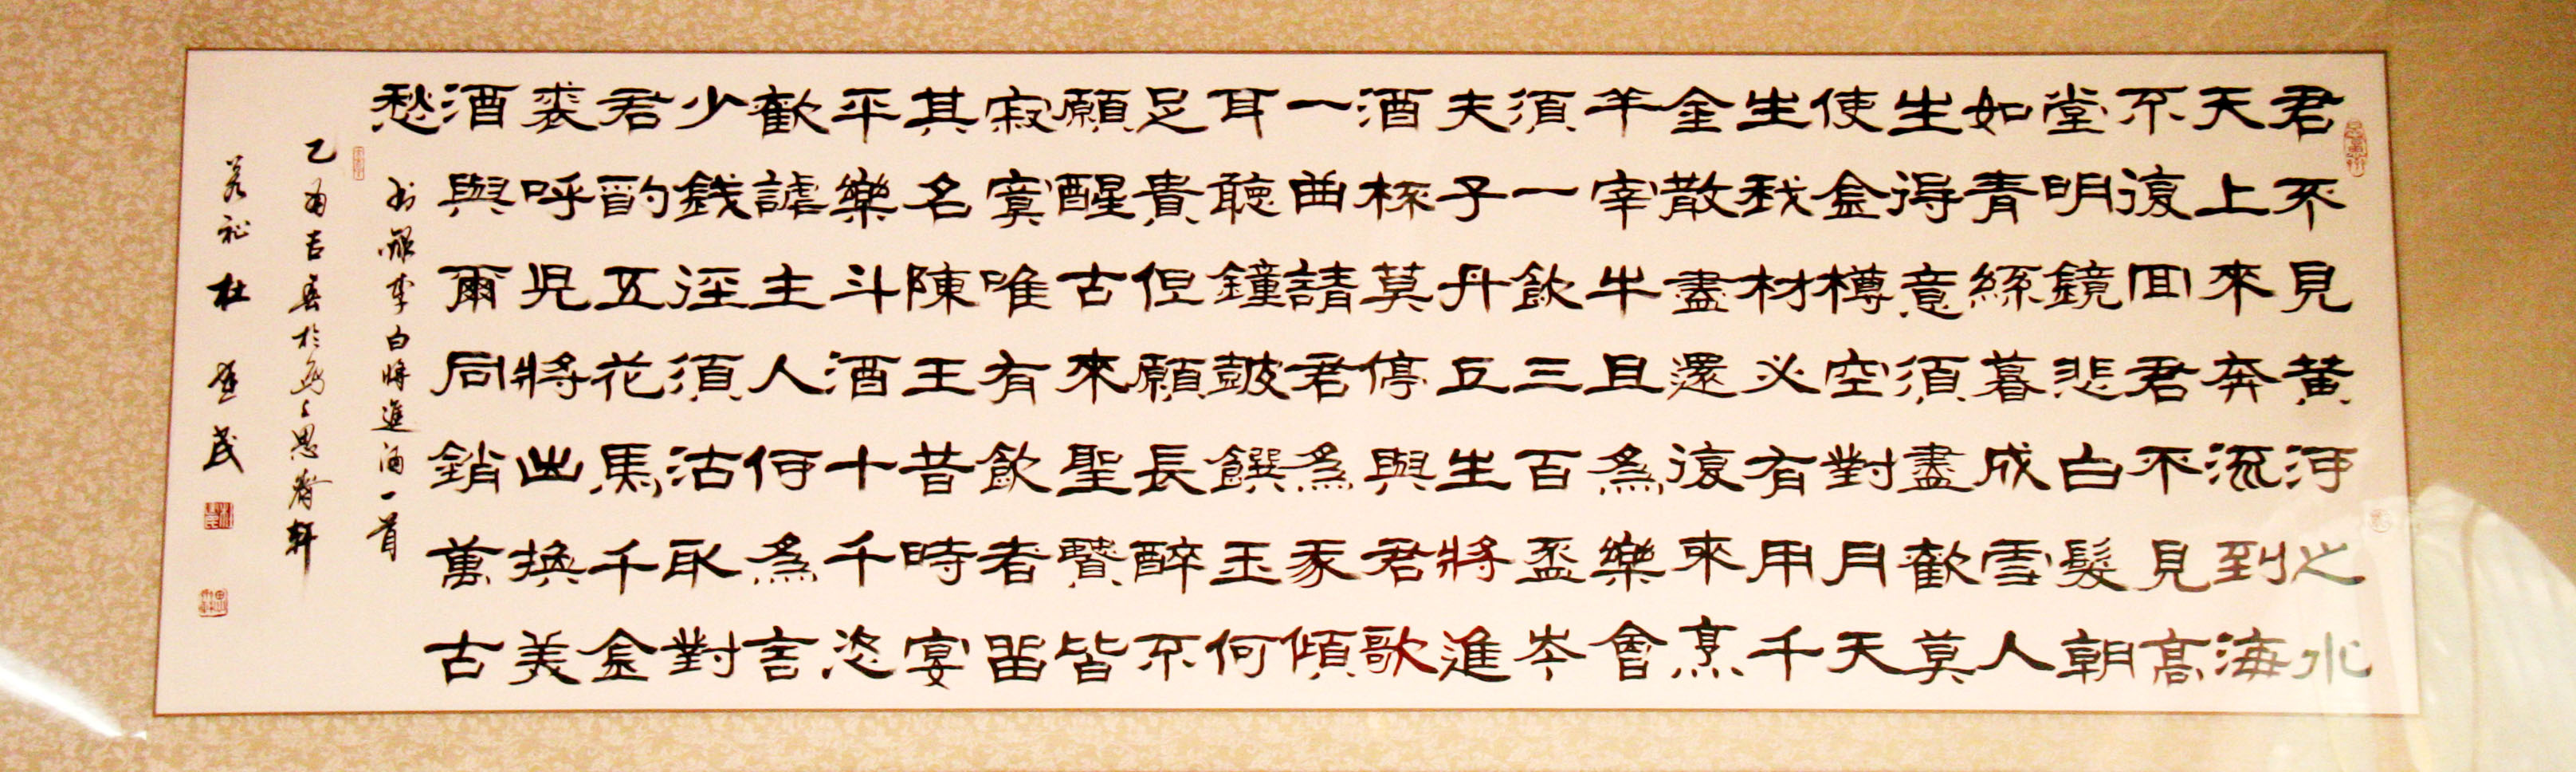 君不見黃河之水
天上來奔流到海
不復回君不見高
堂明鏡悲白髮朝
如青絲暮成雪人
生得意須盡歡莫
使金樽空對月天
生我材必有用千
金散盡還復來烹
羊宰牛且為樂會
須一飲三百盃岑
夫子丹丘生將進
酒杯莫停與君歌
一曲請君為我傾
耳聽鐘鼓饌玉何
足貴但願長醉不
願醒古來聖賢皆
寂寞唯有飲者留
其名陳王昔時宴
平樂斗酒十千恣
歡謔主人何為言
少錢徑須沽取對
君酌五花馬千金
裘呼兒將出換美
酒與爾同銷萬古
愁
李白將進酒一首
乙酉吉春於思齋軒
杜民